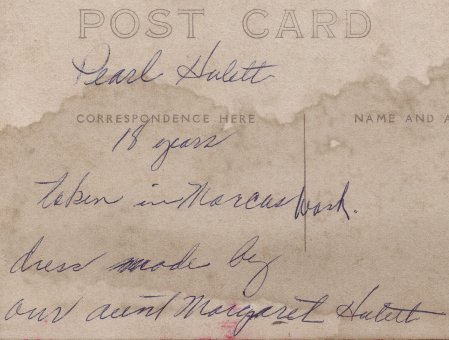 POST CARD
Pearl Hulett
CORRESPONDENCE HERE NAME AND A
18 years
taken in Marcus Wash.
dress made by
our aunt Margaret Hulett